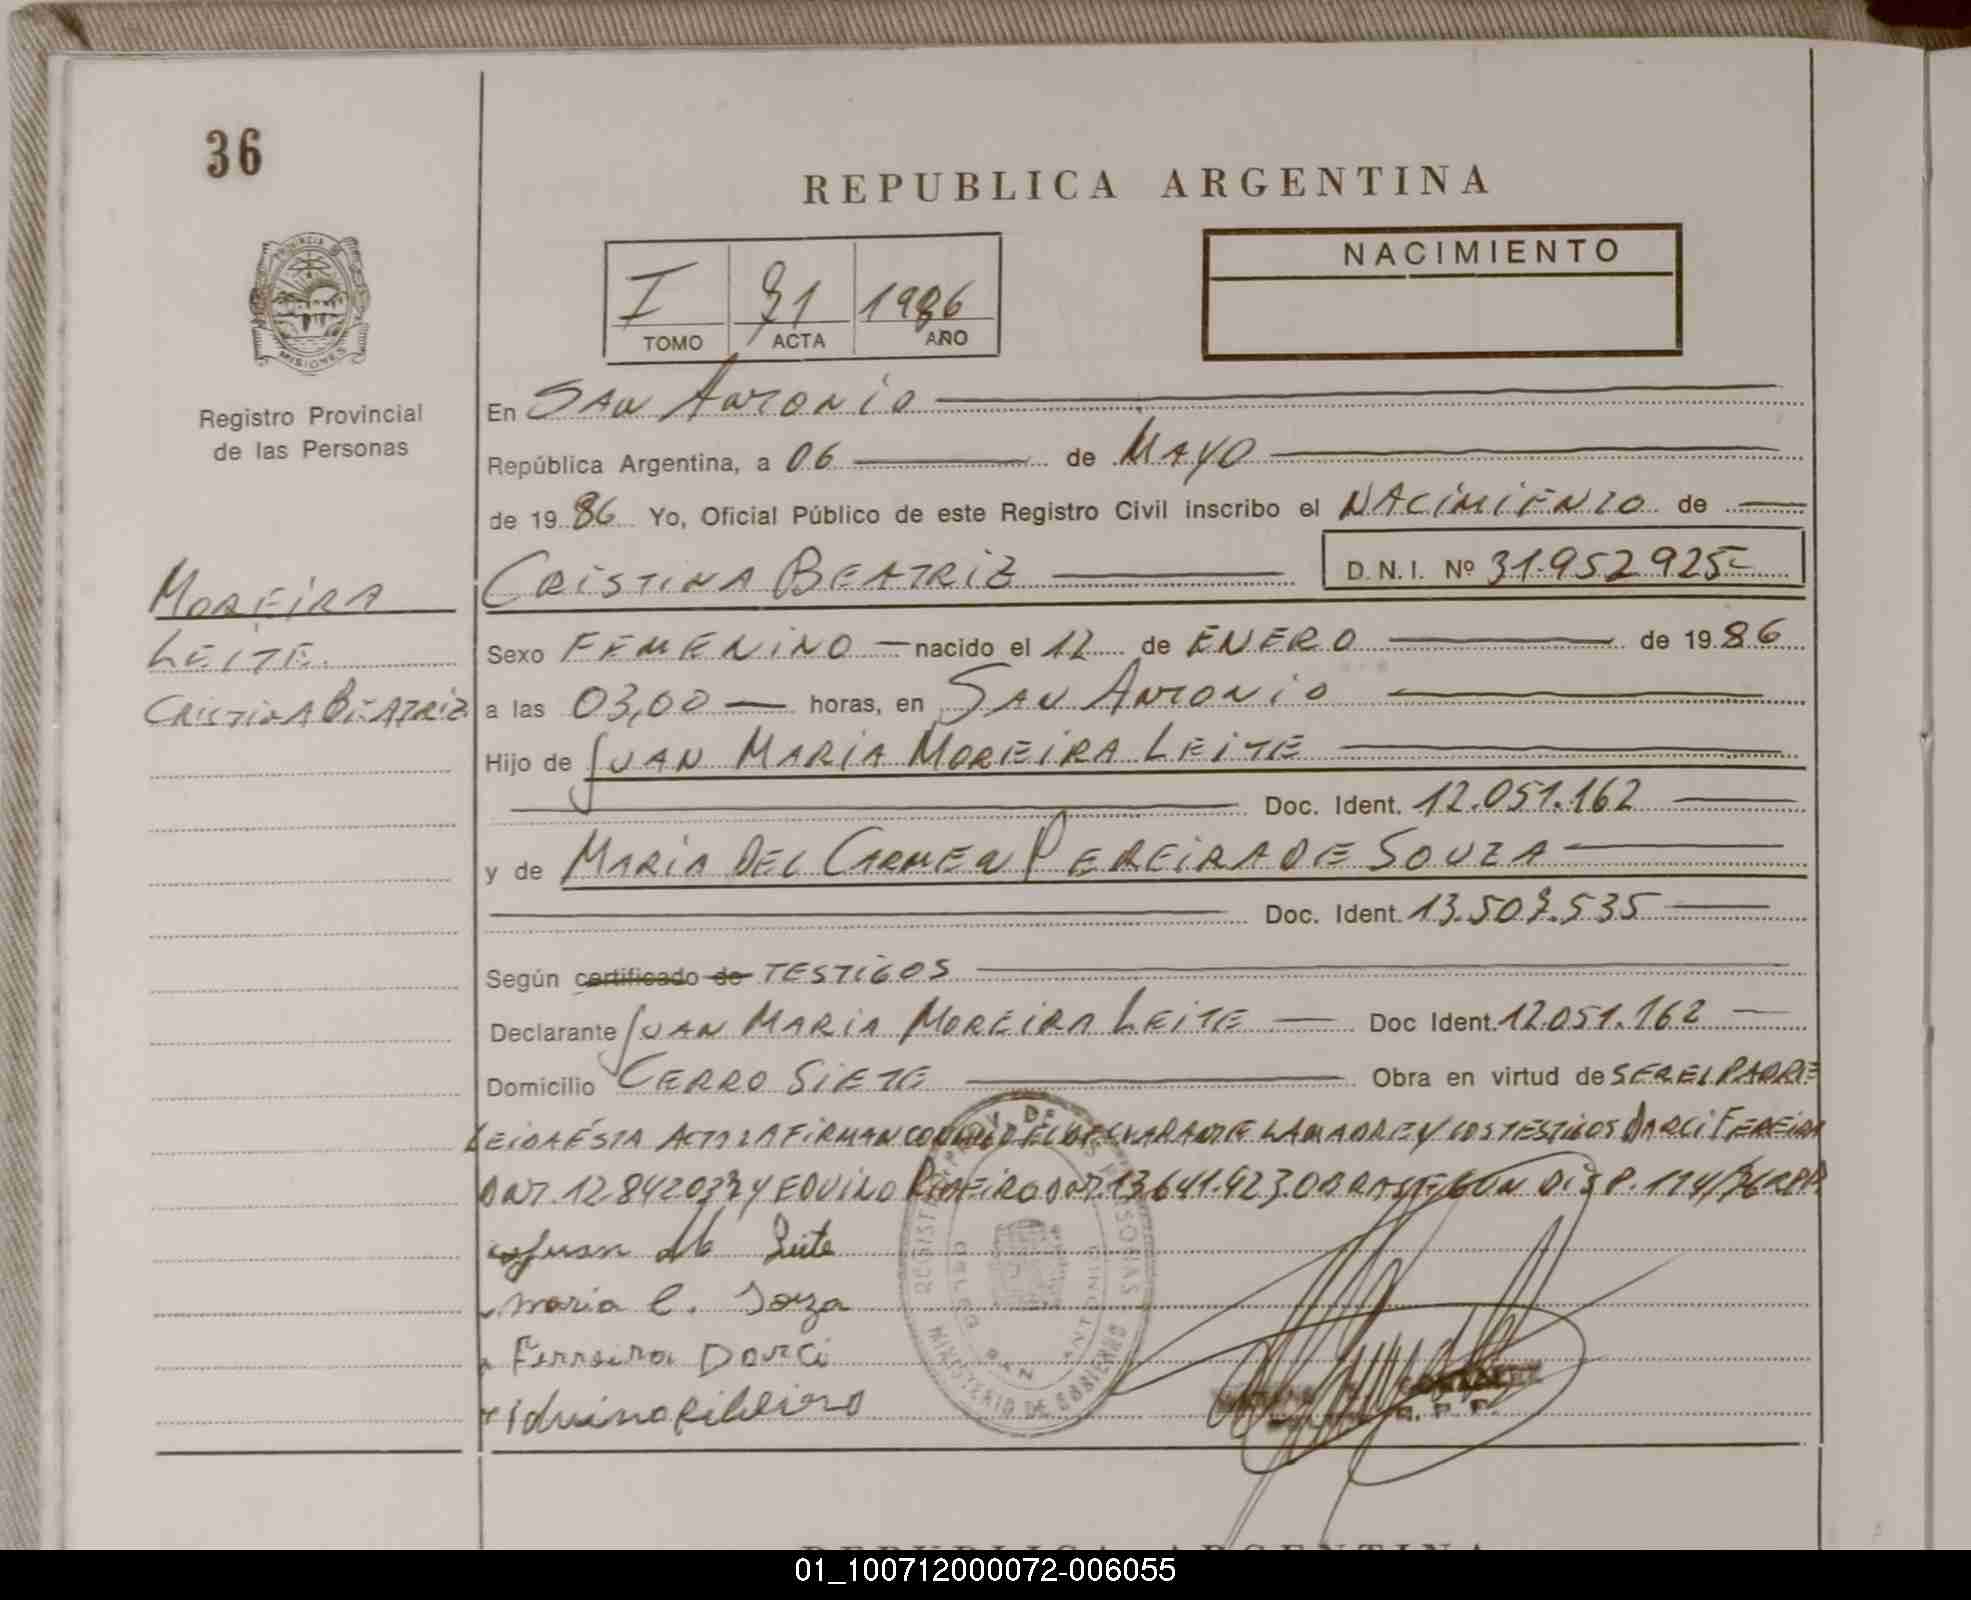 36
REPUBLICA ARGENTINA
PROVINCIA DE MISIONES
NACIMIENTO
I 71 1986
TOMO ACTA AÑO
Registro Provincial
de las Personas
MOREIRA
LEITE
CRISTINA BEATRIZ
En SAN ANTONIO
República Argentina, a 06 de MAYO
de 1986 Yo, Oficial Público de este Registro Civil inscribo el NACIMIENTO de
CRISTINA BEATRIZ D.N.I. Nº 31.952925
Sexo FEMENINO nacido el 12 de ENERO de 1986
a las 03,00 horas, en SAN ANTONIO
Hijo de JUAN MARIA MOREIRA LEITE
Doc. Ident. 12.051.162
y de MARIA DEL CARMEN PEREIRA DE SOUZA
Doc. Ident. 13.507.535
Según certificado de TESTIGOS
Declarante JUAN MARIA MOREIRA LEITE Doc Ident. 12.051.162
Domicilio CERRO SIETE Obra en virtud de SER EL PADRE
LEIDA ÉSTA ACTA LA FIRMAN CONMIGO EL DECLARANTE LA MADRE Y LOS TESTIGOS DARCI FEREIRA
DNI. Y EDUINO RIBEIRO DNI. 13.641.423 OBRA SEGUN DISP. 114/86 RPP
Juan M Leite
Maria C. Souza
Ferreira Darci
Iduino Ribeiro
MINISTERIO DE GOBIERNO
01_100712000072-006055
REPUBLICA ARGENTINA